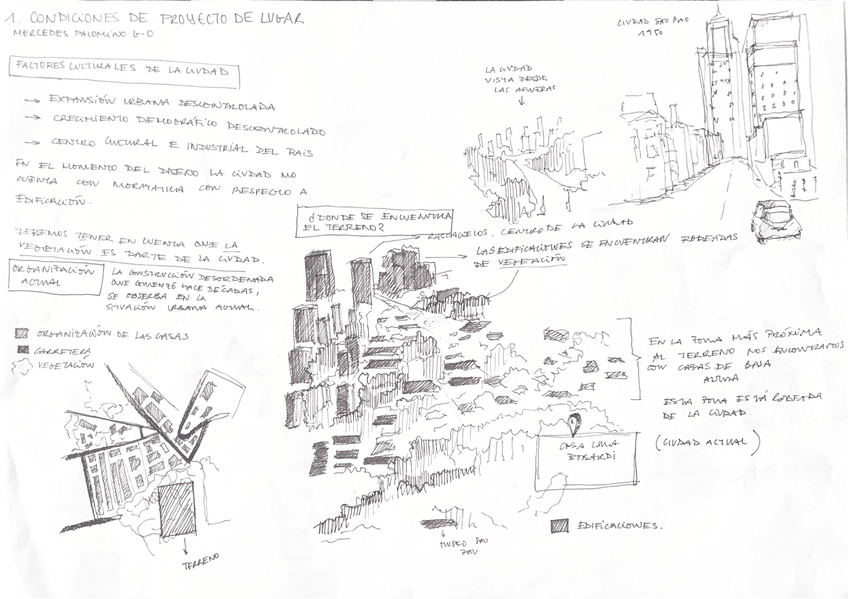 1. CONDICIONES DE PROYECTO DE LUGAR
MERCEDES PALOMINO G-O
FACTORES CULTURALES DE LA CIUDAD
→ EXPANSIÓN URBANA DESCONTROLADA
→ CRECIMIENTO DEMOGRÁFICO DESCONTROLADO
→ CENTRO CULTURAL E INDUSTRIAL DEL PAIS
EN EL MOMENTO DEL DISEÑO LA CIUDAD NO
CUENTA CON NORMATIVA CON RESPECTO A
EDIFICACIÓN.
DEBEMOS TENER EN CUENTA QUE LA
VEGETACIÓN ES PARTE DE LA CIUDAD.
ORGANIZACIÓN
ACTUAL
LA CONSTRUCCIÓN DESORDENADA
QUE COMENZÓ HACE DÉCADAS,
SE OBSERVA EN LA
SITUACIÓN URBANA ACTUAL.
ORGANIZACIÓN DE LAS CASAS
CARRETERA
VEGETACIÓN
TERRENO
CIUDAD SAO PAO
1950
LA CIUDAD
VISTA DESDE
LAS AFUERAS
¿DONDE SE ENCUENTRA
EL TERRENO?
RASCACIELOS. CENTRO DE LA CIUDAD
LAS EDIFICACIONES SE ENCUENTRAN RODEADAS
DE VEGETACIÓN
EN LA ZONA MÁS PRÓXIMA
AL TERRENO NOS ENCONTRAMOS
CON CASAS DE BAJA
ALTURA
ESTA ZONA ESTÁ RODEADA
DE LA CIUDAD.
(CIUDAD ACTUAL)
CASA LINA
BOBARDI
EDIFICACIONES.
MUSEO SAO